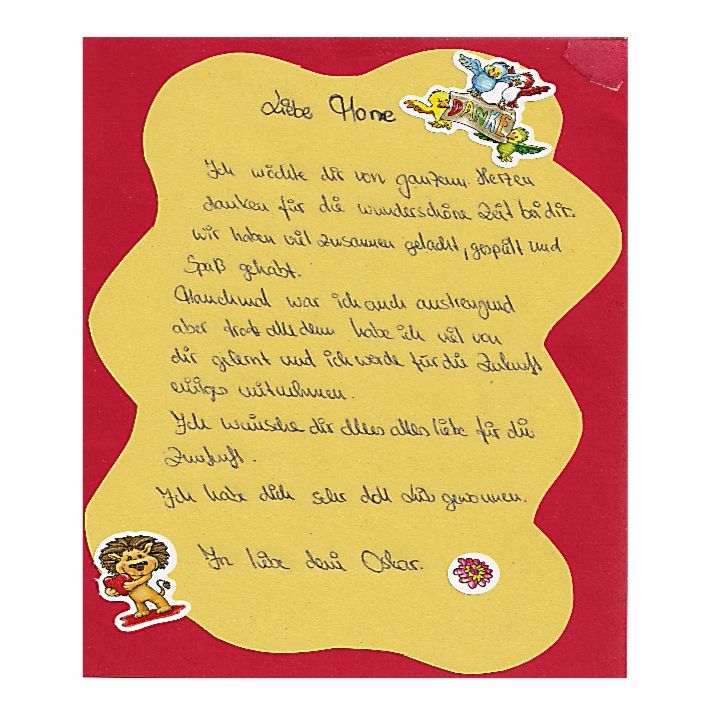 Liebe Hone
DANKE
Ich möchte dir von ganzem Herzen
danken für die wunderschöne Zeit bei dir.
wir haben viel zusammen gelacht, gespielt und
Spaß gehabt.
Manchmal war ich auch anstrengend
aber trotz alle dem habe ich viel von
dir gelernt und ich werde für die Zukunft
einiges mitnehmen.
Ich wünsche dir alles alles liebe für die
Zunkuft.
Ich habe dich sehr doll lieb gewonnen.
In liebe dein Oskar.